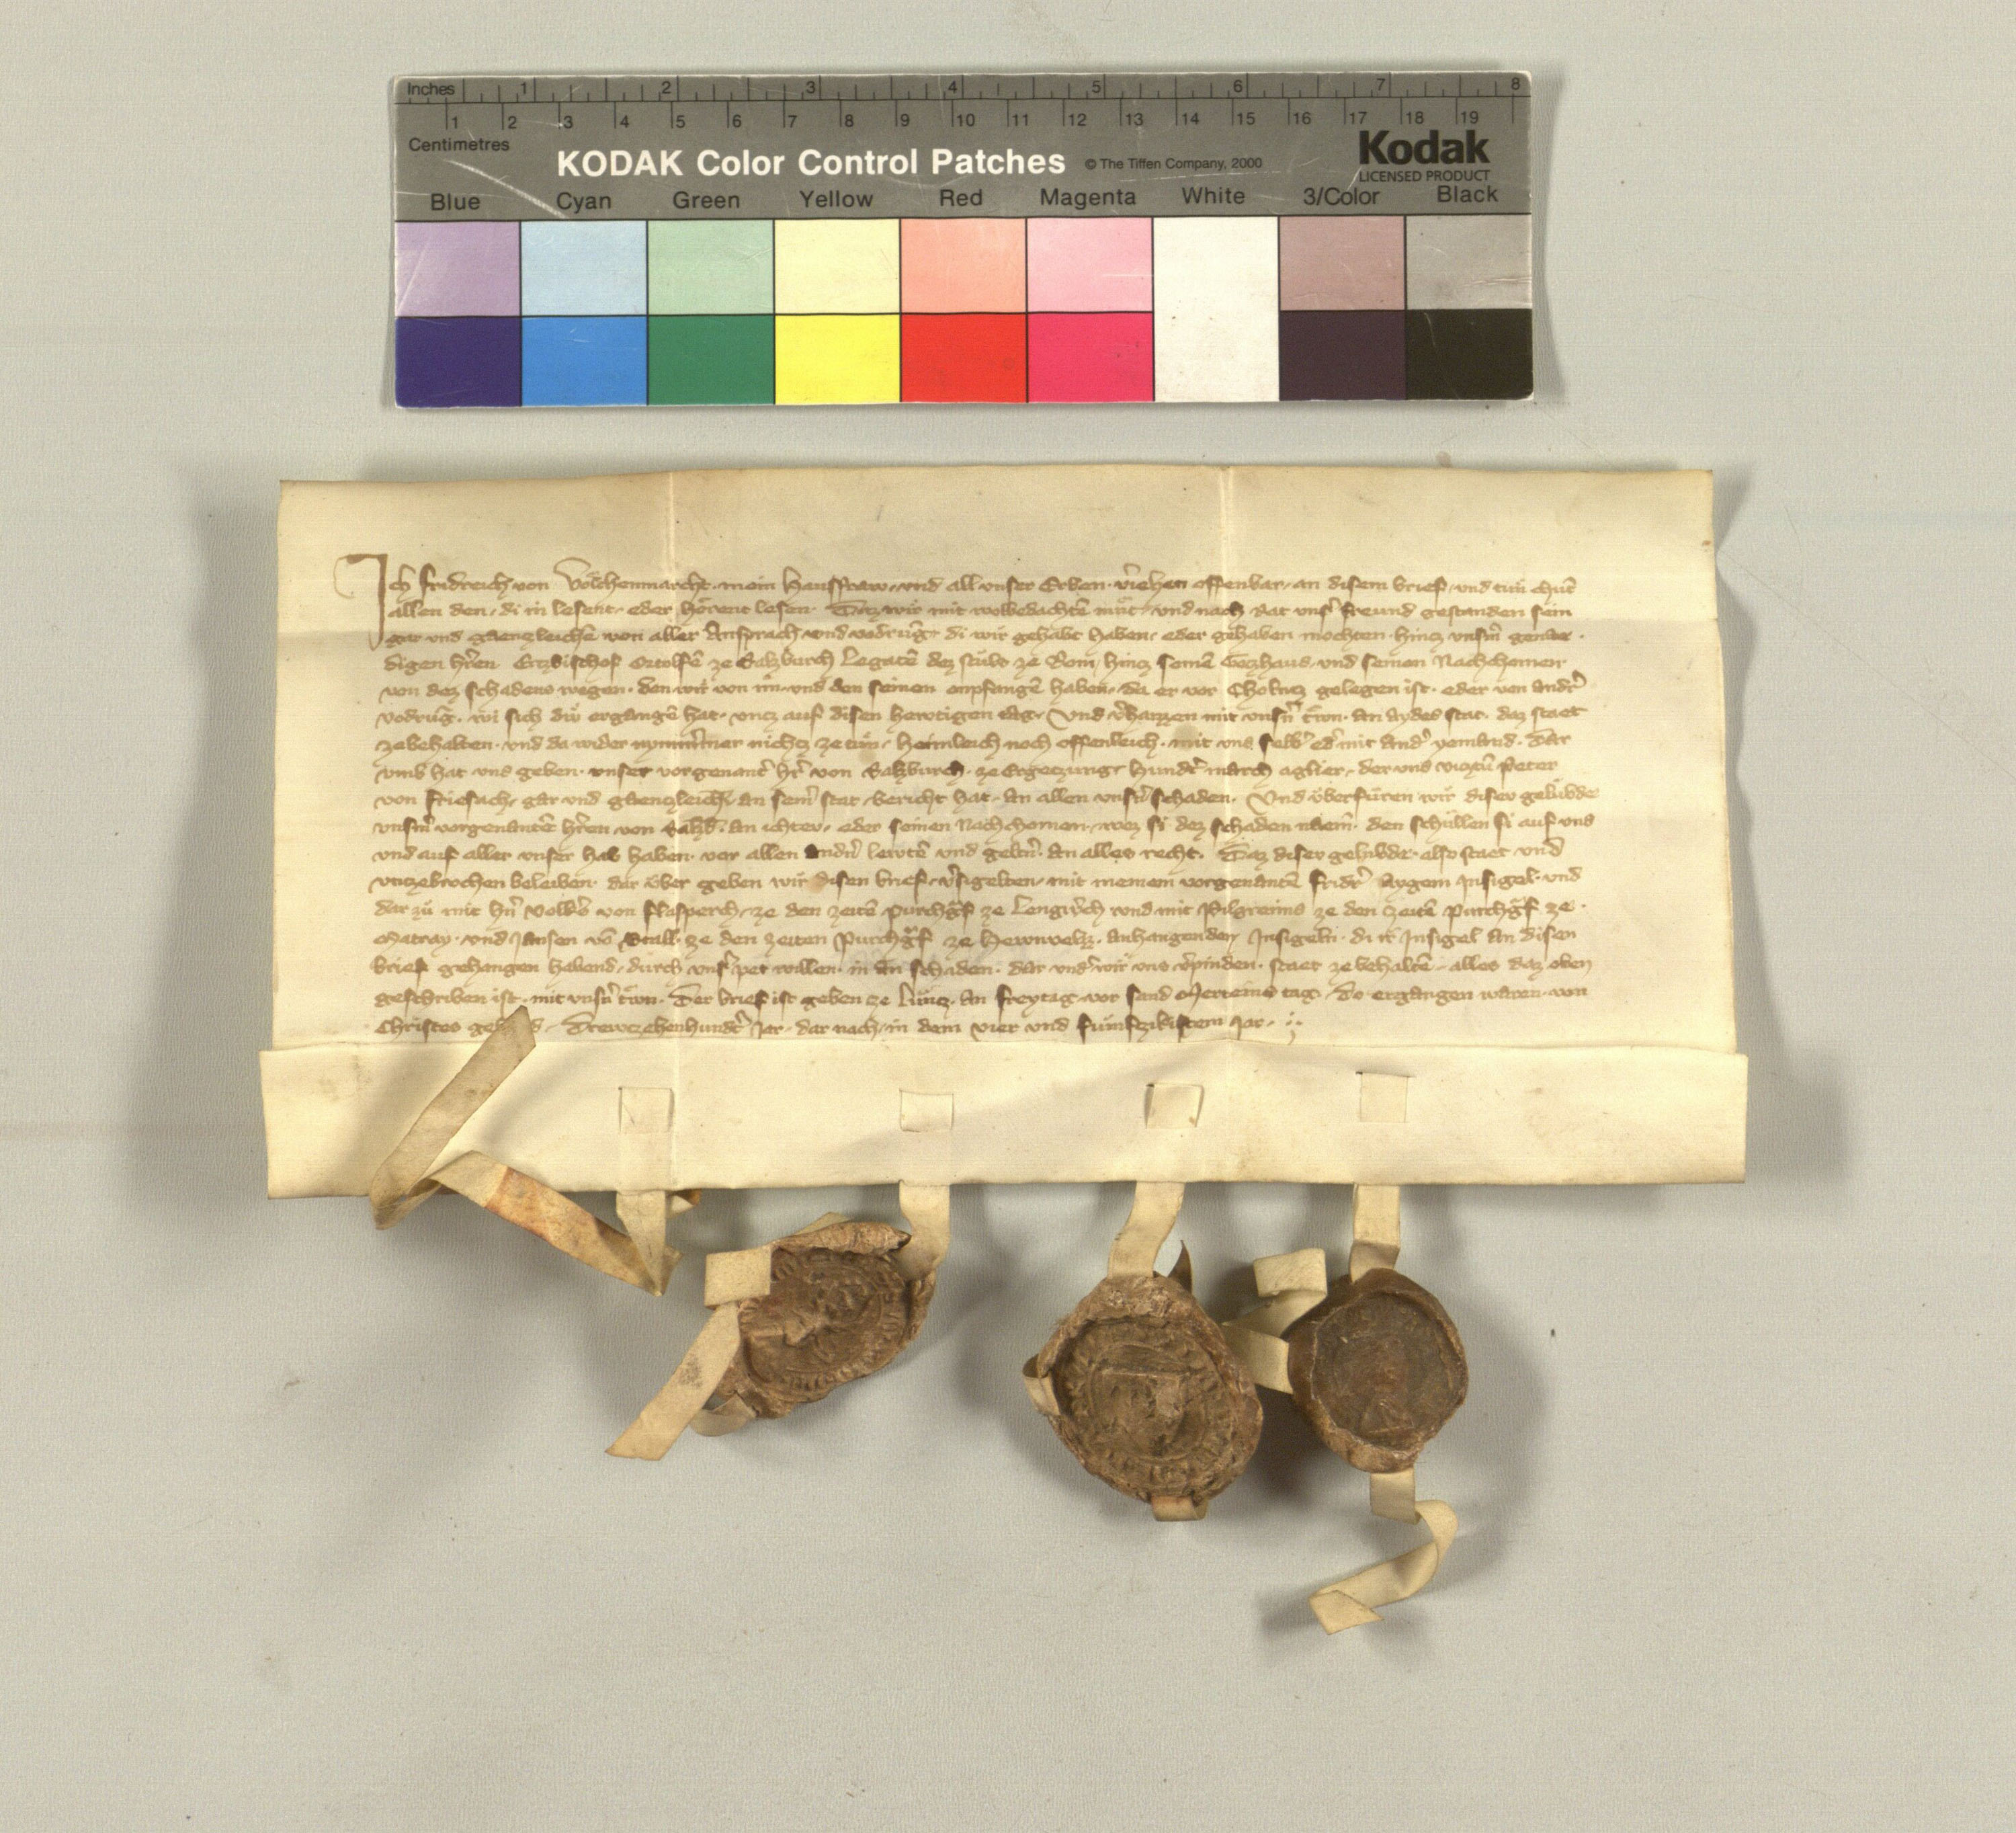 Inches 1 2 3 4 5 6 7 8
1 2 3 4 5 6 7 8 9 10 11 12 13 14 15 16 17 18 19
Centimetres
KODAK Color Control Patches © The Tiffen Company, 2000 Kodak
LICENSED PRODUCT
Blue Cyan Green Yellow Red Magenta White 3/Color Black
Ich fridreich von Völchenmarcht mein Hausfraw und all unser Erben v̾iehen offenbar an disem brief und tuen chu̅t
allen den di in lesent eder hörent lesen Daz wir mit wolbedachte̅ müt und nach Rat uns̾ freund gestanden sein
gar und gaenzleiche̅ von aller Ansprach und vodru̅g di wir gehabt haben eder gehaben mochten hincz unsm̾ gene
digen hr̾en Erzbischof Ortolfe̅ ze Salzburch Legate̅ dez stuls ze Rom hincz seine̅ Gotzhaus und seinen Nachchomen
von dez schadens wegen den wir von im und den seinen enpfange̅ haben da er vor gelegen ist eder von andr̾
vodru̅g wi sich diw ergange̅ hat uncz auf disen hewtigen tag Und v̾haizzen mit unsn̾ trwn an aydes stat daz staet
ze behalten und da wider nymm̾mer nichtz ze tün heimleich noch offenleich mit uns selb̾ ed̾ mit and̾ yemand Dar
umb hat uns geben unser vorgenant̾ hr̾ von Salzburch ze Ergetzung hundr̾t march aglier der uns viztu̅ Peter
von friesach gar und gaenzleich an seīn stat bericht hat an allen unsn̾ schaden Und überfüren wir diseu gelübde
unsm̾ vorgenante̅ hr̾en von Salzb̾ an ichtev eder seinen Nachchomen wez si dez schaden naem̅ den schüllen si auf uns
und auf aller unser hab haben vor allen andn̾ lewte̅ und geltn̾ an alles recht Daz diseu gelübde also staet und
unzebrochen beleiben dar über geben wir disen brief v̾sigelten mit meinem vorgenante̅ fridr̾ aygem Insigel und
dar zü mit hn̾ Volk̾s von flasperch ze den zeite̅ purchg̾f ze Lengb̾ch und mit Pilgreims ze den zeite̅ purchg̾f ze
Matray und Jansen vo̅ ze den zeiten purchg̾f ze anhangenden Insigeln di ir Insigel an disen
brief gehangen habend durch unsr̾ pet willen in an schaden dar und̾ wir uns v̾pinden staet ze behalte̅ alles daz oben
geschriben ist mit unsn̾ trwn Der brief ist geben ze Lüncz an freytag vor sand Merteins tag do ergangen waren von
Christes Drewczehenhundr̾t Jar dar nach in dem vier und fünfzikistem Jar